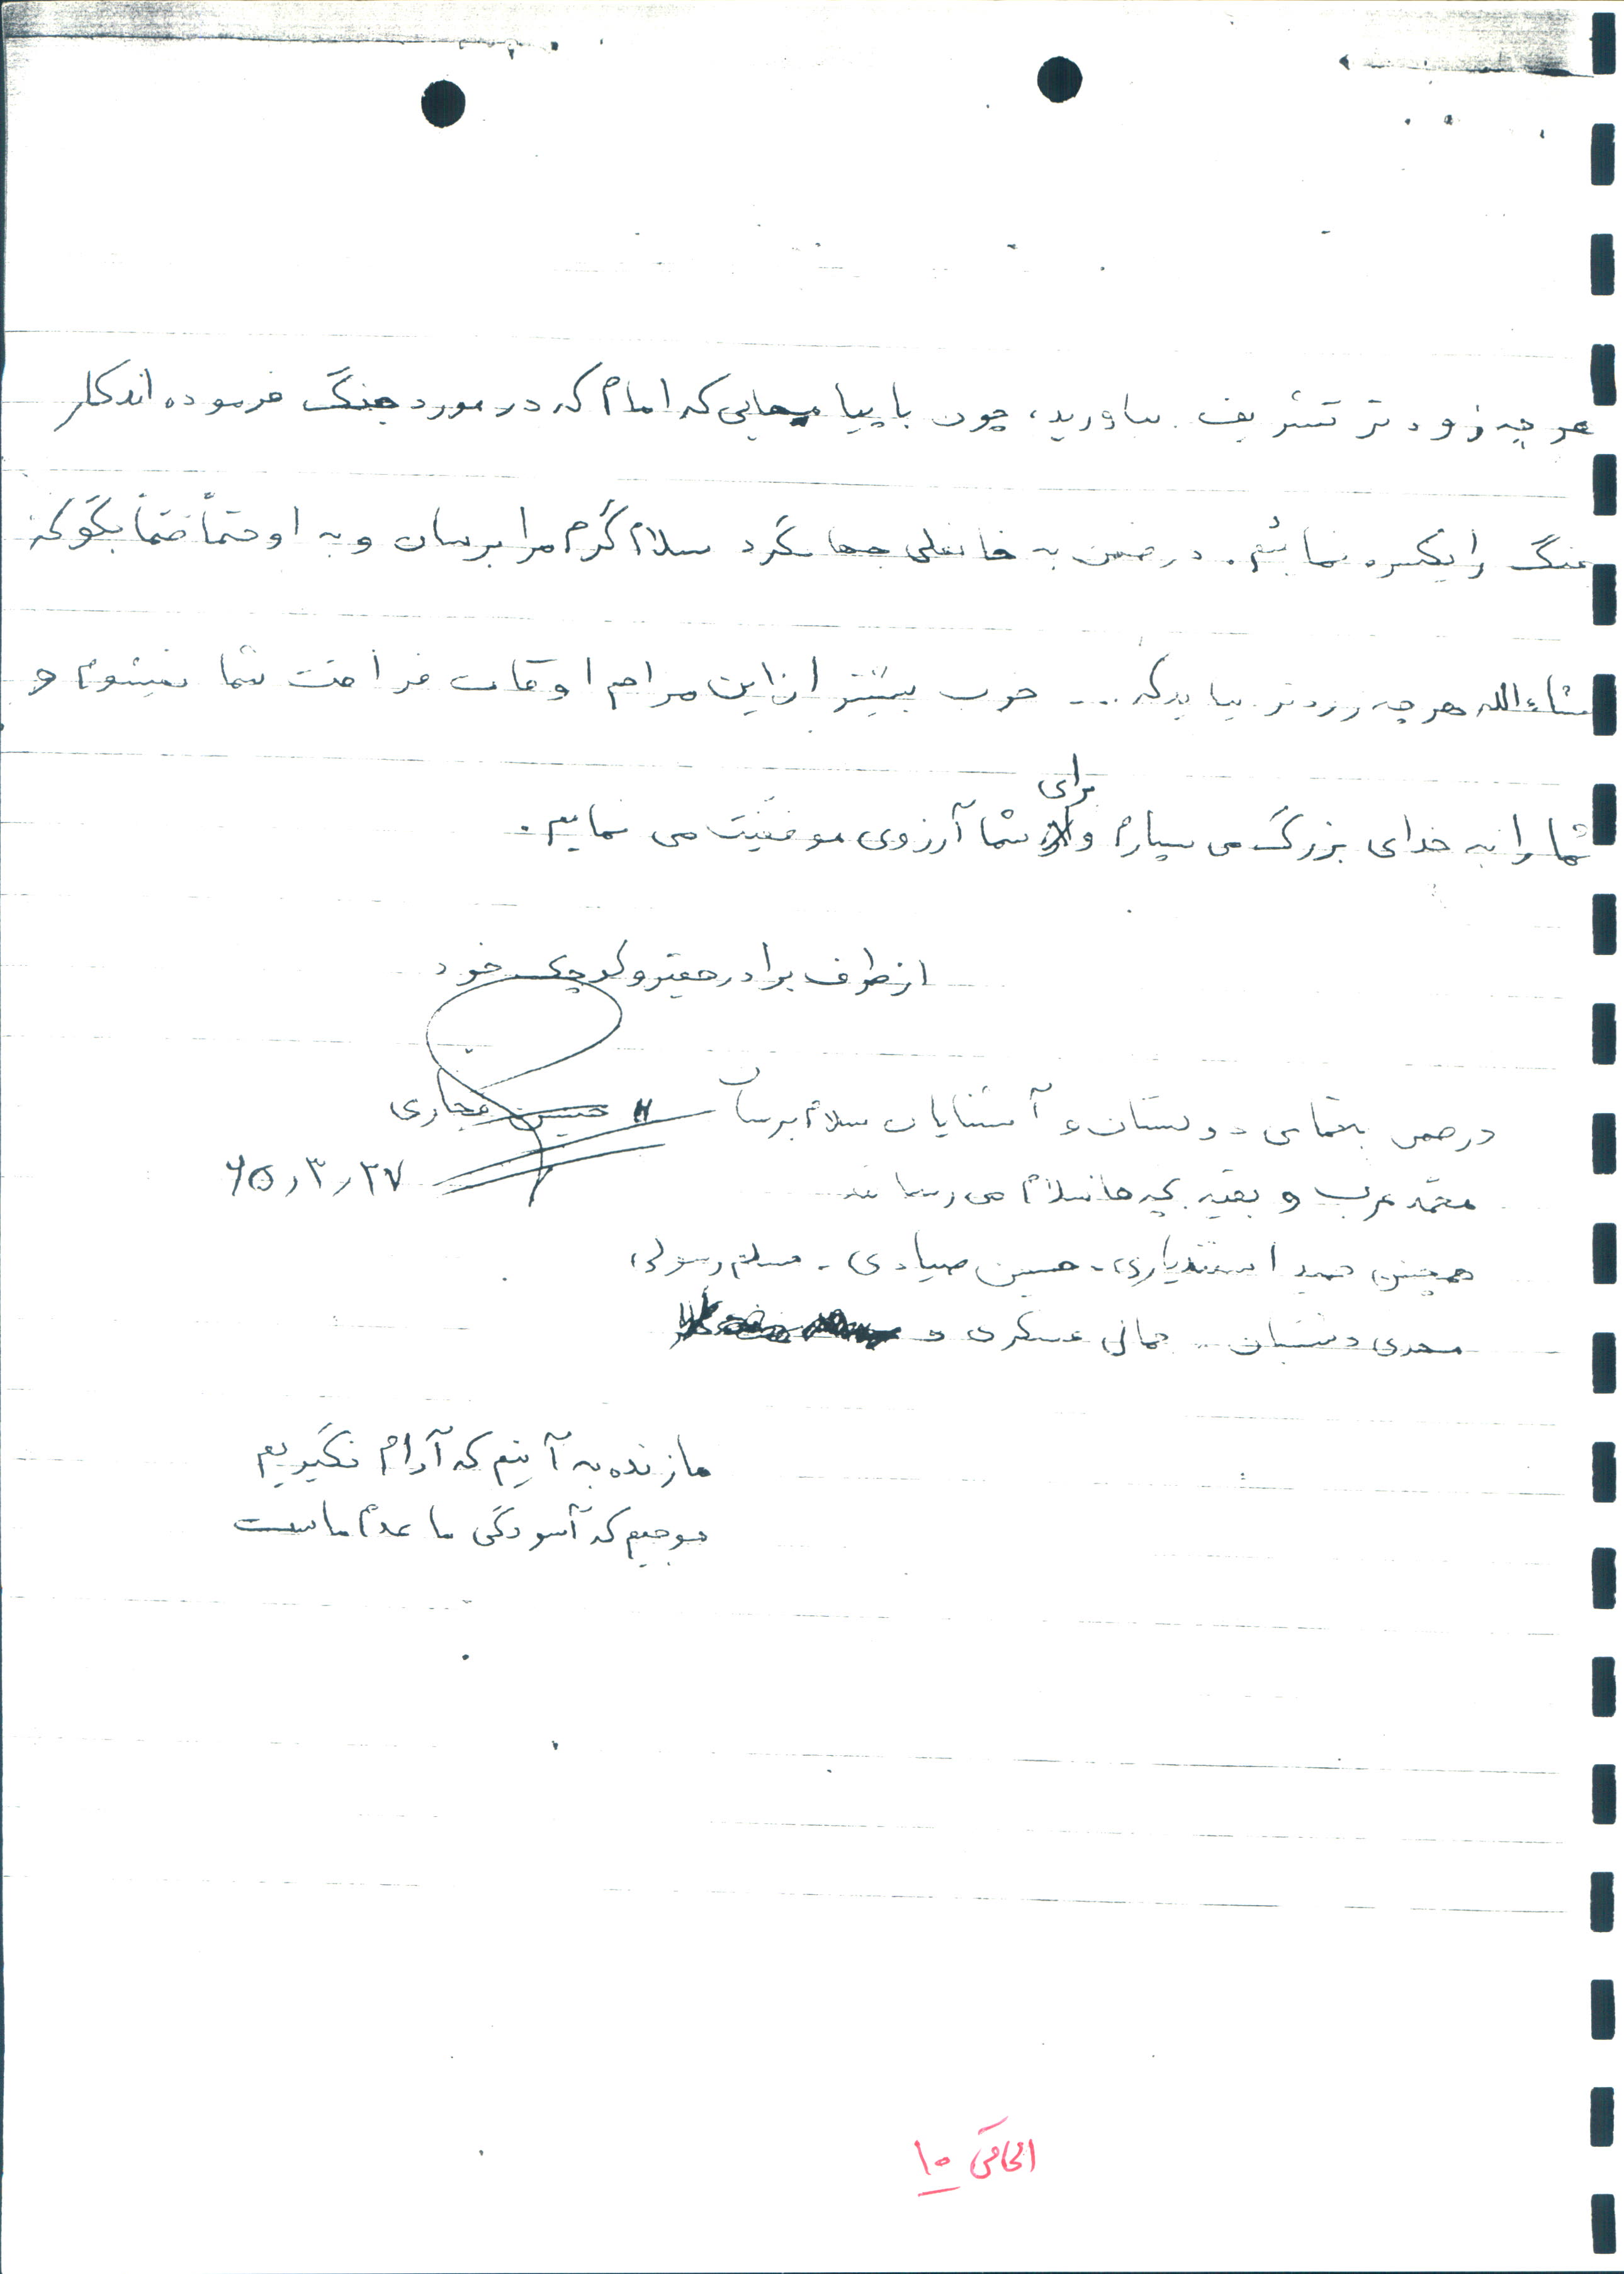 هر چه زودتر تشریف بیاورید، چون با پیامهایی که امام که در مورد جنگ فرموده اند کار
جنگ را یکسره نمائیم. در ضمن به خانعلی جهانگرد سلام گرم مرا برسان و به او حتماً حتماً بگو که
انشاءالله هر چه زودتر بیاید که ... خوب بیشتر از این مزاحم اوقات فراغت شما نمیشوم و
شما را به خدای بزرگ می سپارم و برای شما آرزوی موفقیت می نمایم.
از طرف برادر حقیر و کوچک خود
حسین حجاری
۶۵٫۳٫۲۷
در ضمن بتمامی دوستان و آشنایان سلام برسان
محمد عرب و بقیه بچه ها سلام می رسانند
همچنین حمید اسفندیاری - حسین صیادی - مسلم رسولی
مهدی دشتبان - جمالی عسکری و
ما زنده به آنیم که آرام نگیریم
موجیم که آسودگی ما عدم ماست
الحاقی ۱۰